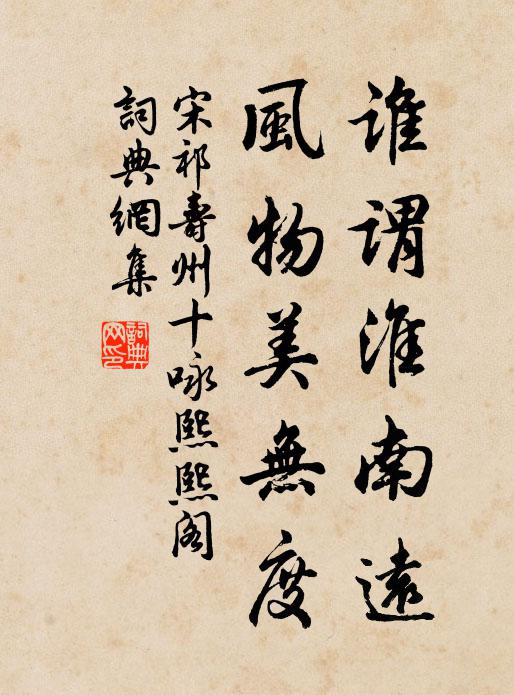 誰謂淮南遠
風物美無度
宋祁壽州十咏熙熙阁
詞典網集
詞典
网印